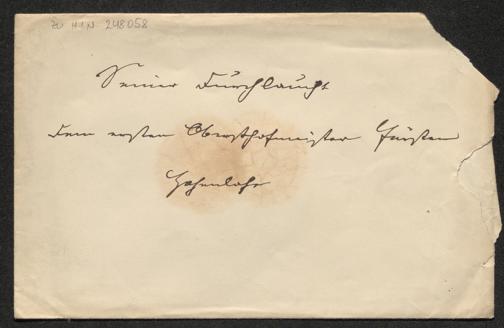 ZU H.I.N. 248058
Seiner Durchlaucht
dem ersten Obersthofmeister Fürsten
Hohenlohe